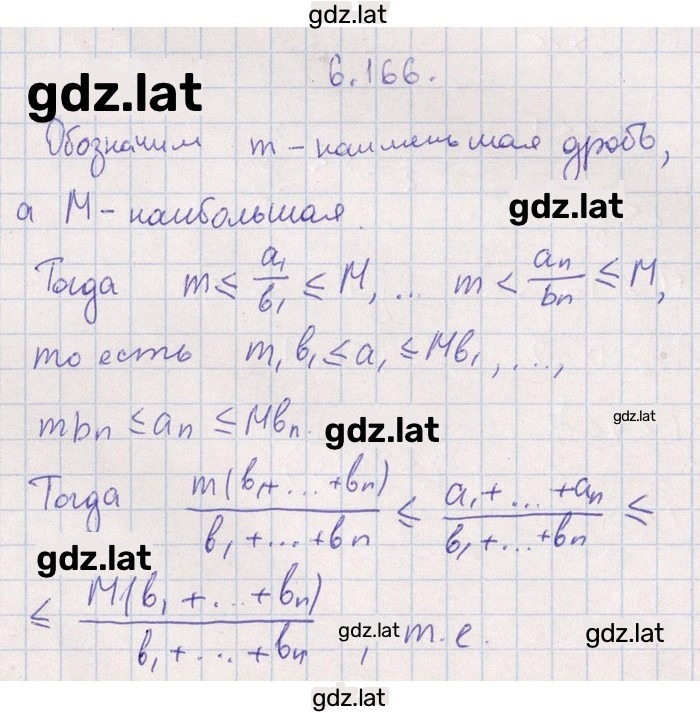 gdz.lat
6.166.
gdz.lat
Обозначим m – наименьшая дробь,
а M – наибольшая.
gdz.lat
Тогда m ≤ a₁/b₁ ≤ M, ... m < aₙ/bₙ ≤ M,
то есть m, b₁ ≤ a₁ ≤ Mb₁, ...,
gdz.lat
mbₙ ≤ aₙ ≤ Mbₙ.
gdz.lat
Тогда m(b₁+...+bₙ)/b₁+...+bₙ ≤ a₁+...+aₙ/b₁+...+bₙ ≤
gdz.lat
≤ M(b₁+...+bₙ)/b₁+...+bₙ, т.е.
gdz.lat
gdz.lat
gdz.lat